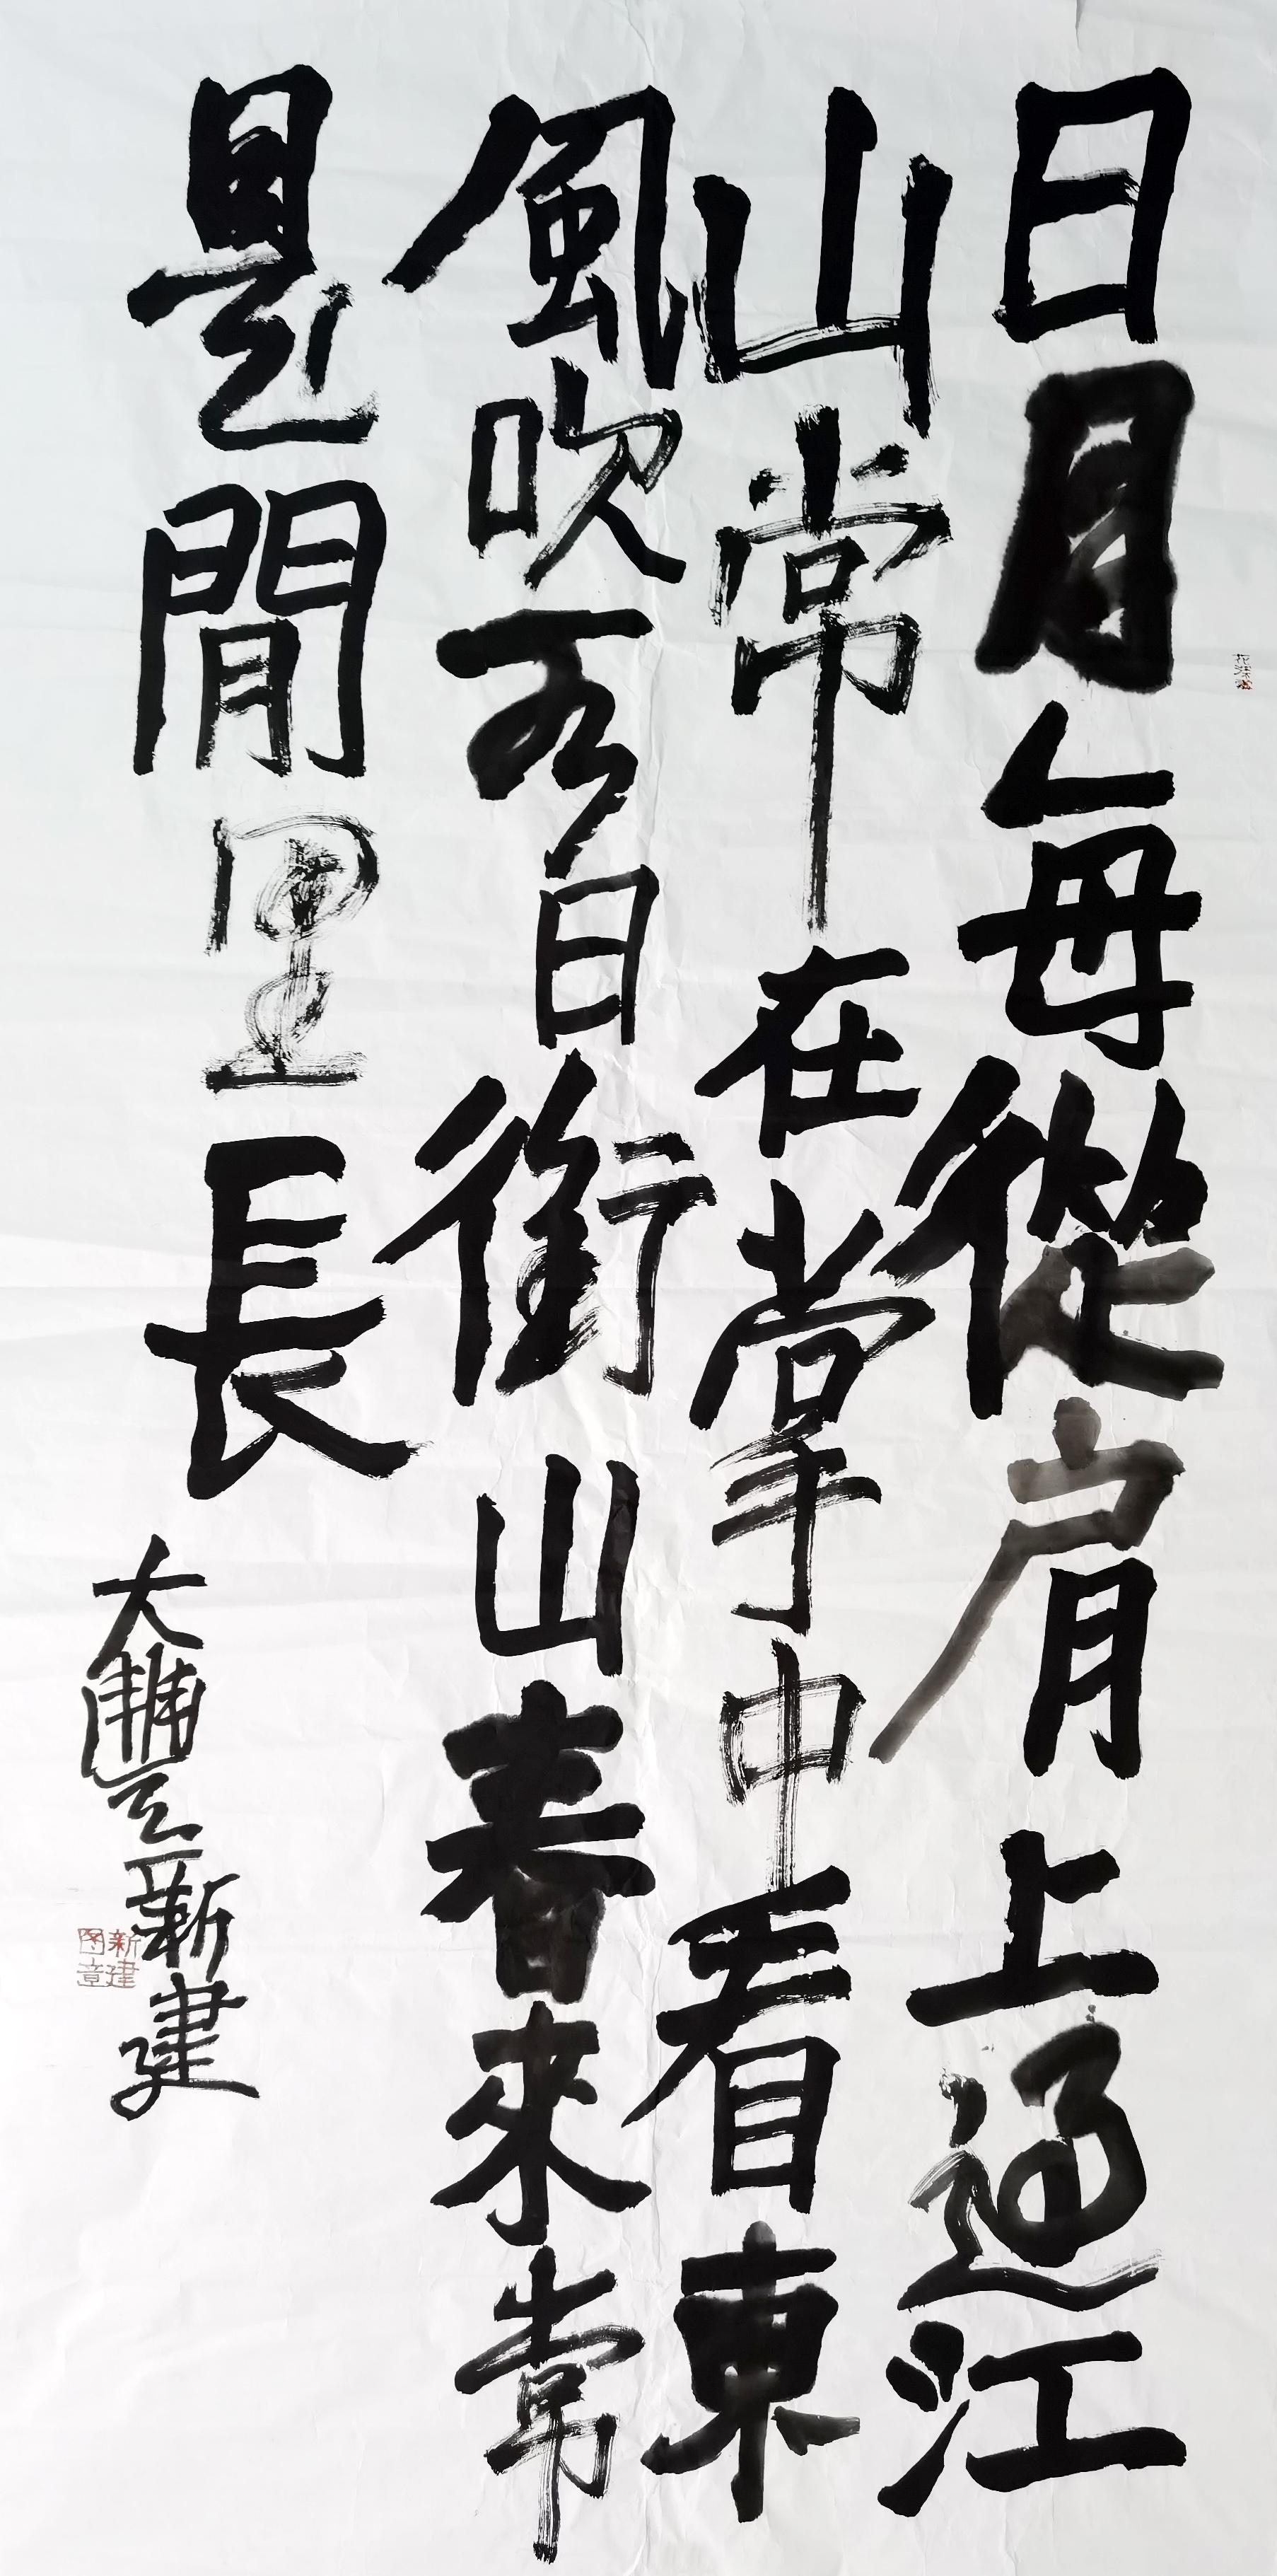 日月每從肩上過江
山常在掌中看東
風吹百日銜山春來常
是閒里長
大 新建
新建
图章